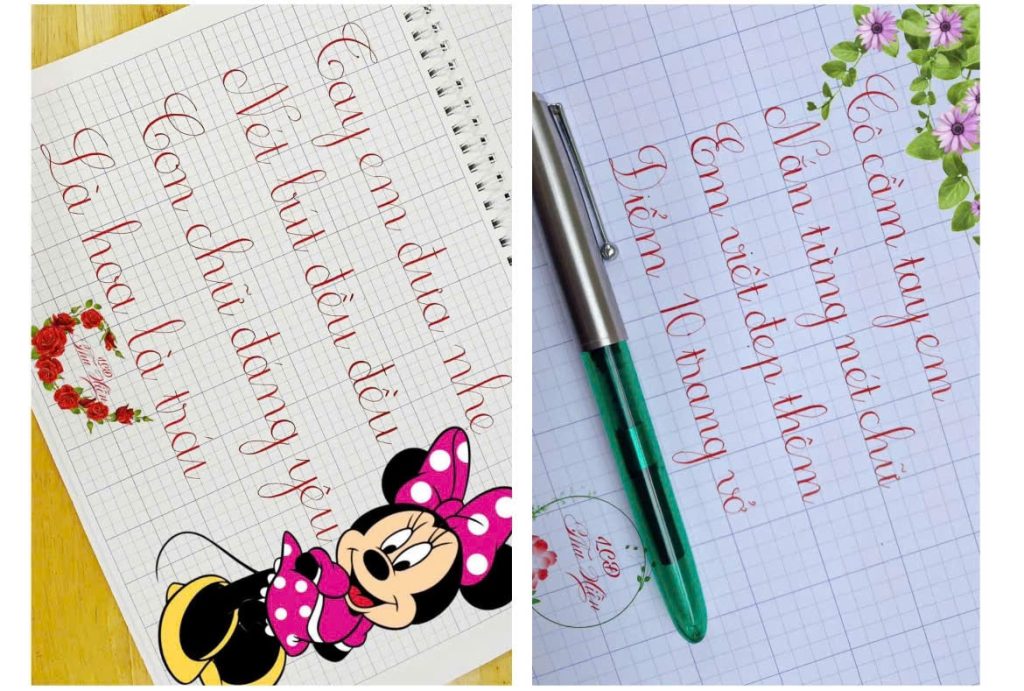 Tay em đưa nhẹ
Nét bút đều đều
Con chữ đáng yêu
Là hoa là trái
LCĐ
Thu Hiền
Cô cầm tay em
Nắn từng nét chữ
Em viết đẹp thêm
Điểm 10 trang vở
LCĐ
Thu Hiền